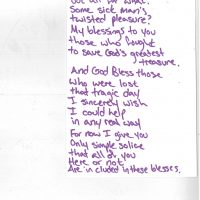 but all for what.
Some sick man's
twisted pleasure?
My blessings to you
those who fought
to save God's greatest
treasure.
And God Bless those
who were lost
that tragic day
I sincerely wish
I could help
in any real way
For now I give you
Only simple solice
that all of you
Here or not
Are in cluded in these blesses.